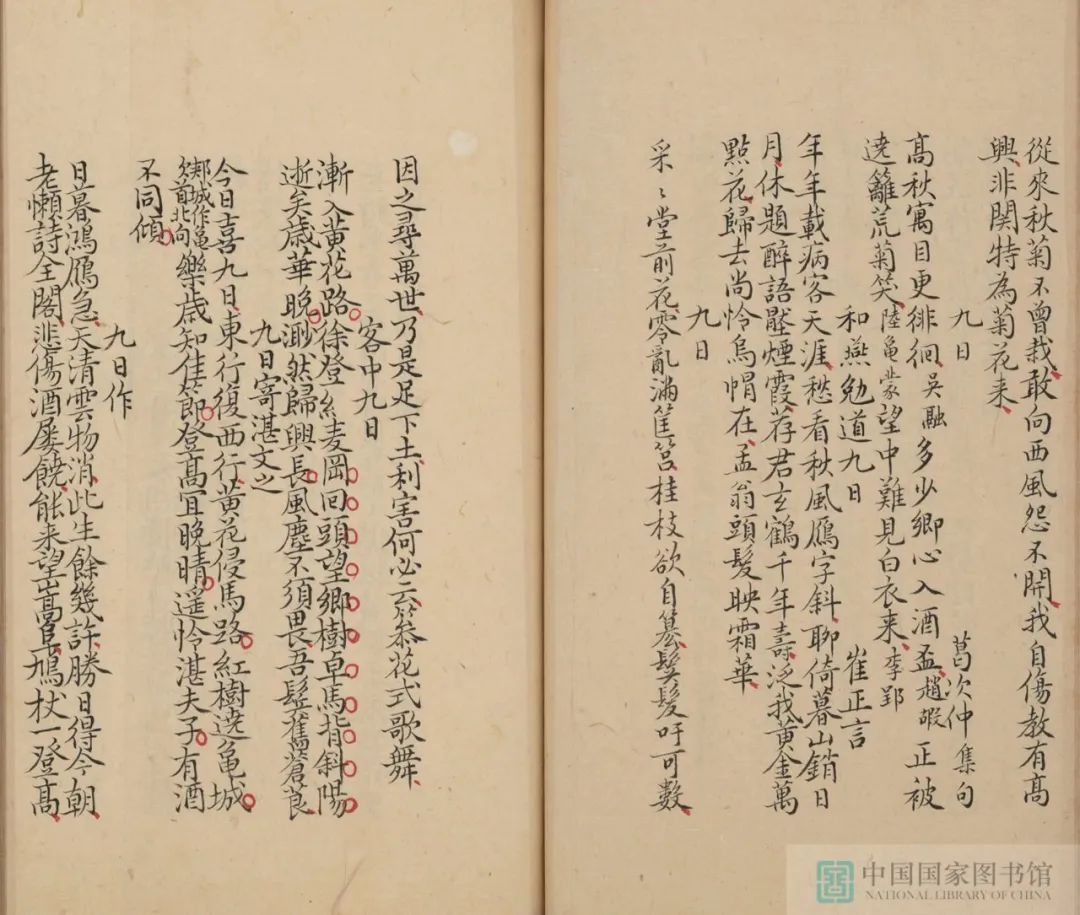 從來秋菊不曾栽敢向西風怨不開我自傷教有高
興非関特為菊花来
九日
葛次仲集句
高秋寓目更徘徊吳融多少鄉心入酒盃趙嘏正被
遶籬荒菊笑陸龜蒙望中難見白衣来李郢
和燕勉道九日
崔正言
年年載病客天涯愁看秋風鴈字斜聊倚暮山銷日
月休題醉語壓煙霞荐君玄鶴千年壽泛我黄金萬
點花歸去尚怜烏帽在孟翁頭髮映霜華
九日
采〻堂前花零亂滿筐筥桂枝欲自纂鬓髮吁可數
因之尋萬世乃是足下土利害何必云簪花式歌舞
客中九日
漸入黄花路徐登紅麦岡回頭望鄉樹卓馬背斜陽
逝矣歳華晚渺然歸興長風塵不須畏吾髩舊蒼莨
九日寄湛文之
今日喜九日東行復西行黄花侵馬路紅樹遶龜城
邦城作龜
欠首北向樂歳知佳節登髙宜晚晴遥怜湛夫子有酒
不同傾
九日作
日暮鴻鴈急天清雲物消此生餘幾許勝日得今朝
老懶詩全閣悲傷酒屡饒能来望嵩阜鳩杖一登髙
中国国家图书馆
NATIONAL LIBRARY OF CHINA